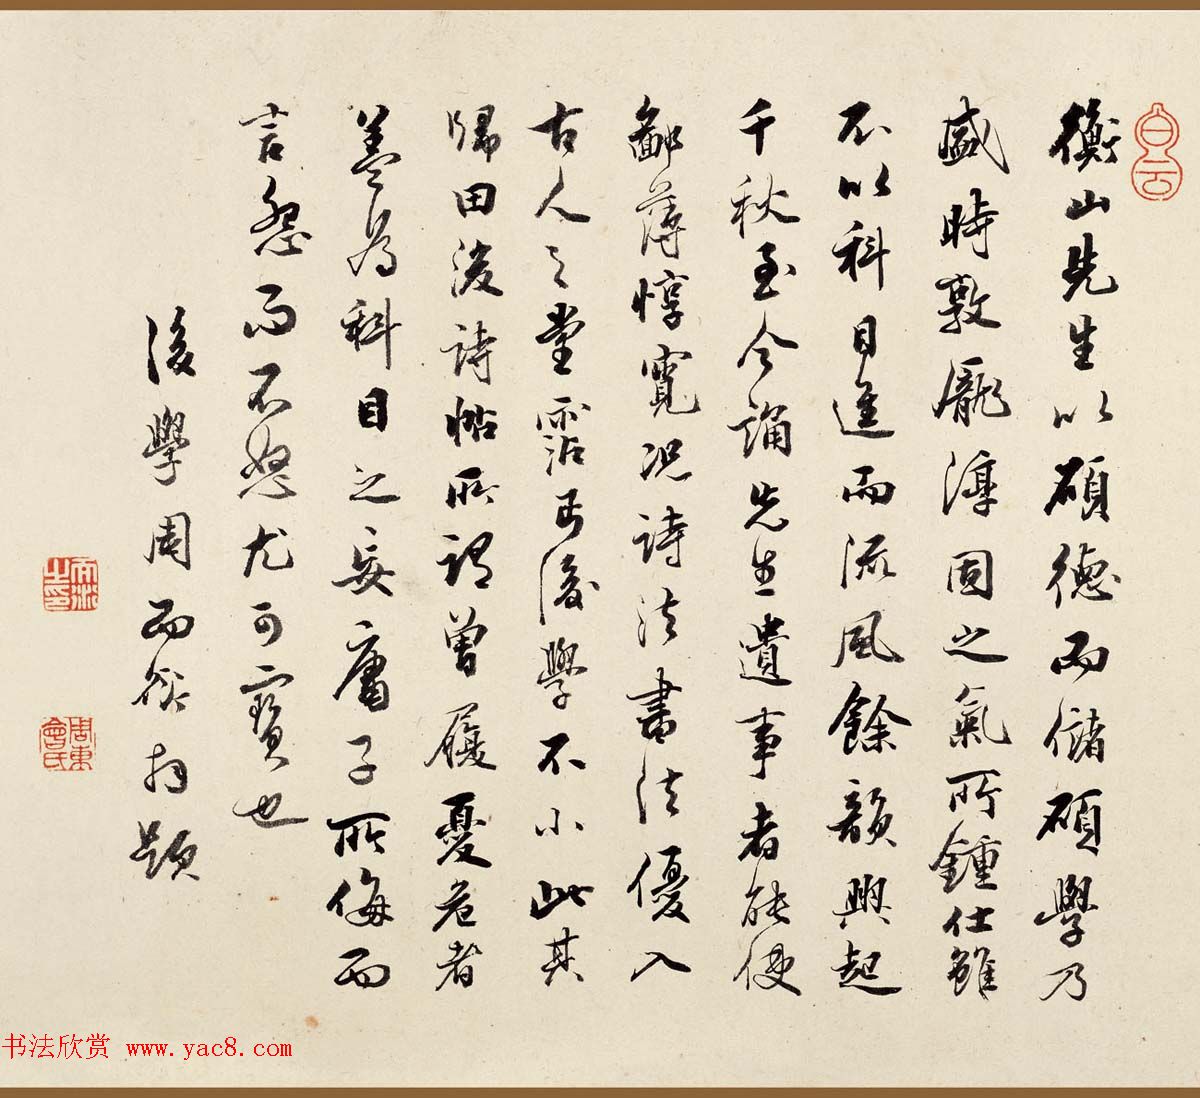 白 云
衡山先生以碩德而儲碩學乃
盛時敦龐淳固之氣所鍾仕雖
不以科目進而流風餘韻興起
千秋至今誦先生遺事者能使
鄙薄惇寬況詩法書法優入
古人之堂霑丐後學不小此其
歸田後詩帖所謂曾履憂危者
蓋為科目之妄庸子所侮而
言怨而不怒尤可寶也
後學周而衍拜題
周東會氏
书法欣赏 www.yac8.com